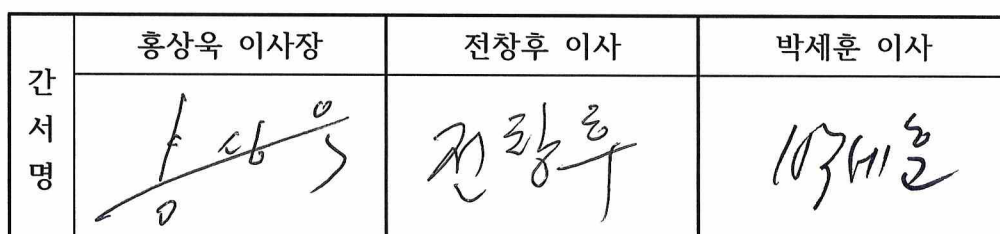 간서명
홍상욱 이사장
전창후 이사
박세훈 이사
홍상욱
전창후
박세훈